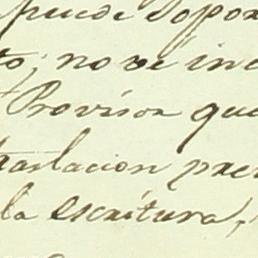 puede sopor
to, no vé inc
Provisor que
traslacion pre
la escritura,